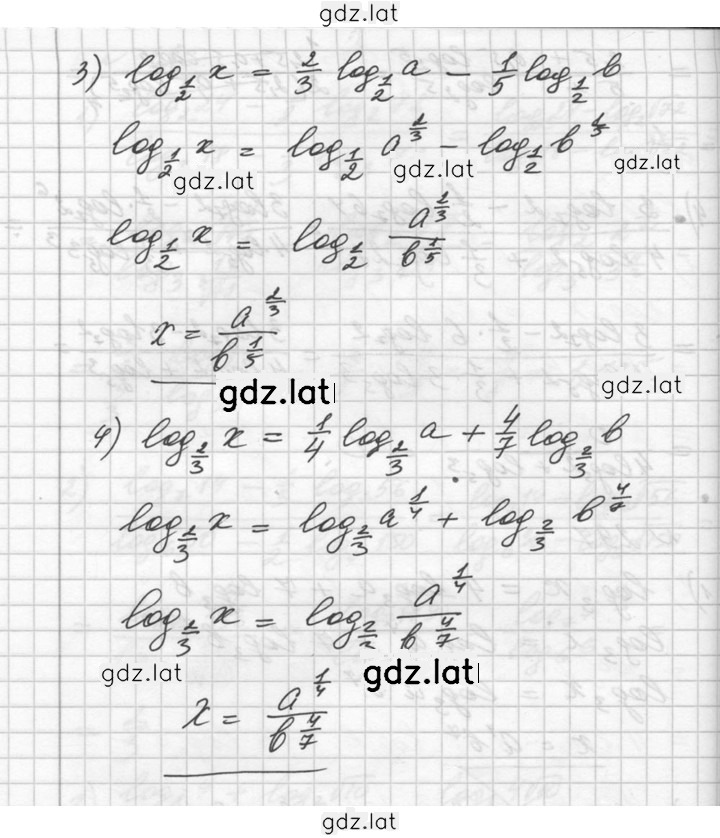 gdz.lat
3) log_{1/2} x = 2/3 log_{1/2} a - 1/5 log_{1/2} b
log_{1/2} x = log_{1/2} a^{2/3} - log_{1/2} b^{1/5}
gdz.lat gdz.lat gdz.lat
log_{1/2} x = log_{1/2} a^{2/3}/b^{1/5}
x = a^{2/3}/b^{1/5}
gdz.lat gdz.lat
4) log_{2/3} x = 1/4 log_{2/3} a + 4/7 log_{2/3} b
log_{2/3} x = log_{2/3} a^{1/4} + log_{2/3} b^{4/7}
log_{2/3} x = log_{2/3} a^{1/4}/b^{4/7}
gdz.lat gdz.lat
x = a^{1/4}/b^{4/7}
gdz.lat